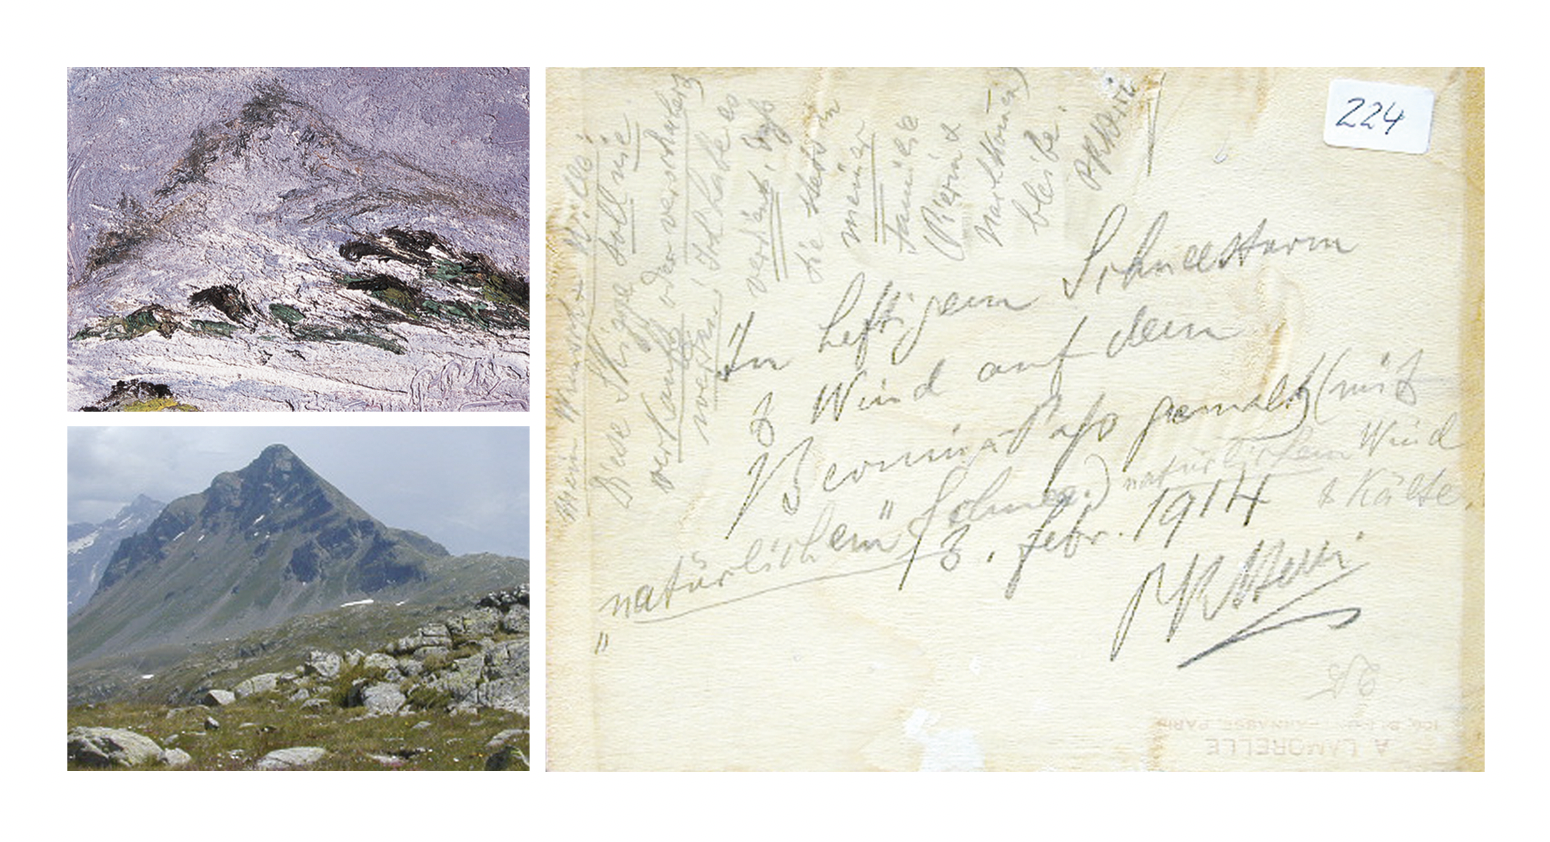 224
Mein Wunsch & Wille!
Diese Skizze soll nie
verkauft oder verschachert
werden! Ich habe es
verdient, daß
sie stets in
meiner
Familie
(Pierin &
Nachkommen)
bleibe!
In heftigem Schneesturm
& Wind auf dem
BerninaPaß gemalt (mit
„natürlichem" Schnee.) natürlichem Wind
& Kälte
13. Febr. 1914
25
A LAMORELLE
PARNASSE, PARIS